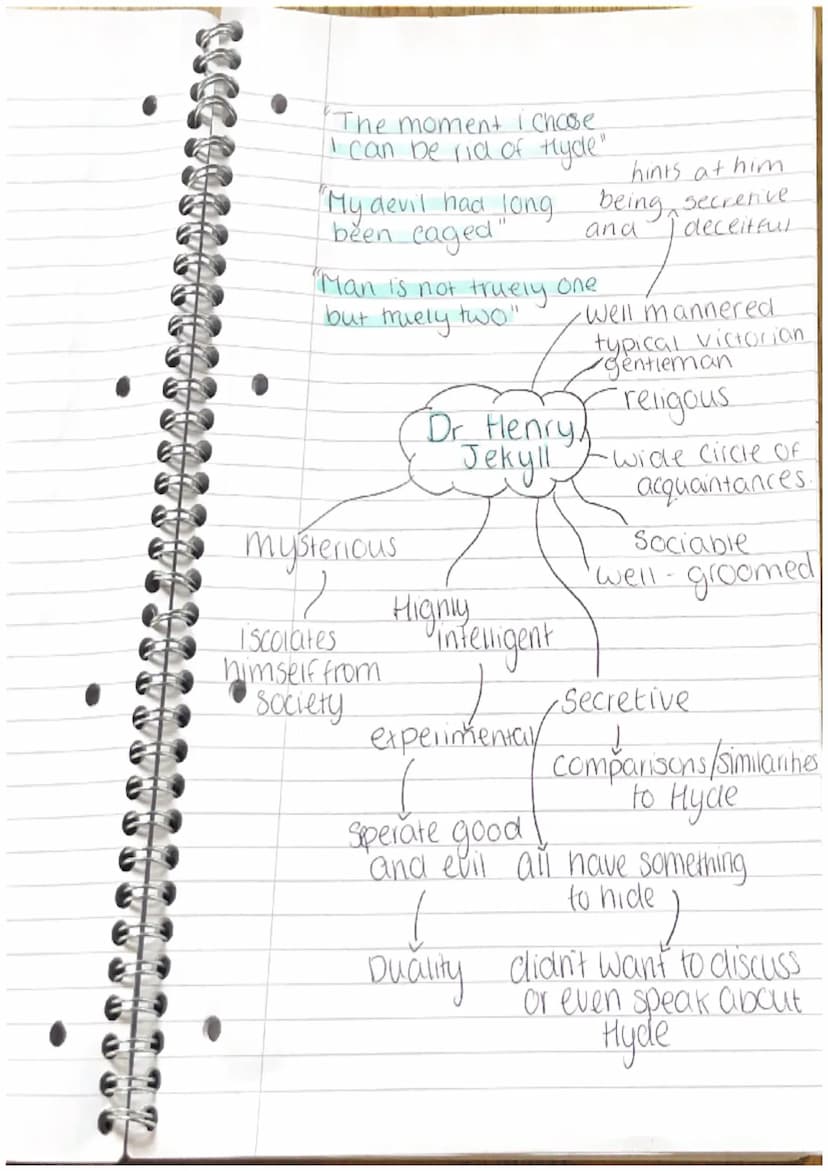 "The moment i chose
I can be rid of Hyde"
"My devil had long
been caged"
"Man is not truely one
but truely two"
hints at him
being secretive
and deceitful
well mannered
typical victorian
gentleman
religous
wide circle of
acquaintances.
Sociable
well-groomed
Dr Henry
Jekyll
mysterious
iscolates
himself from
society
Highly
intelligent
experimental
Sperate good
and evil
Duality
Secretive
comparisons/similarities
to Hyde
all have something
to hide
didn't want to discuss
or even speak about
Hyde